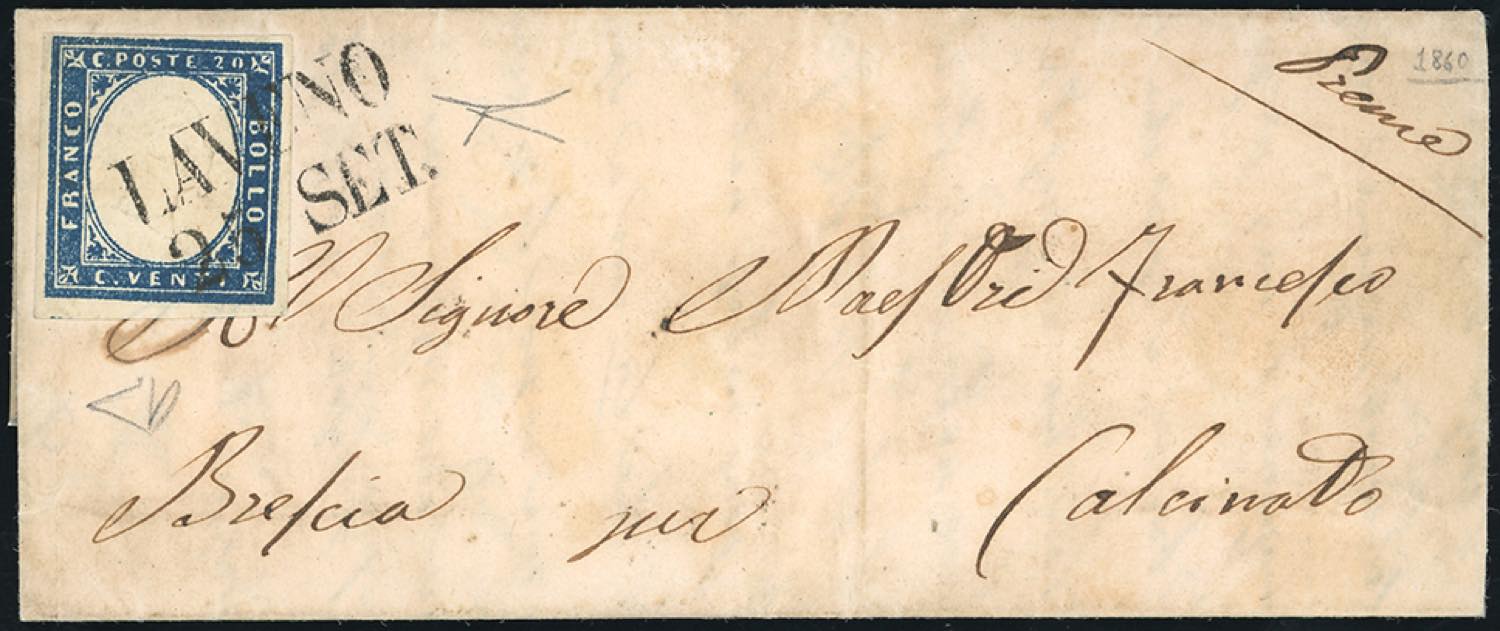 C. POSTE 20
FRANCO
BOLLO
C. VENTI
LAVENO
SET.
1860
Al Signore Maestri Francesco
Brescia per Calcinatto